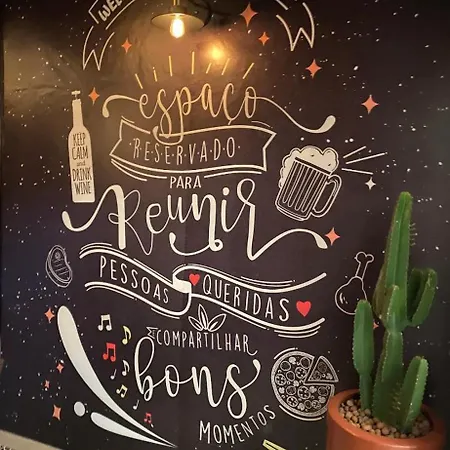 WEL
espaço
RESERVADO
PARA
Reunir
PESSOAS QUERIDAS
E COMPARTILHAR
bons
MOMENTOS
KEEP
CALM
and
DRINK
WINE